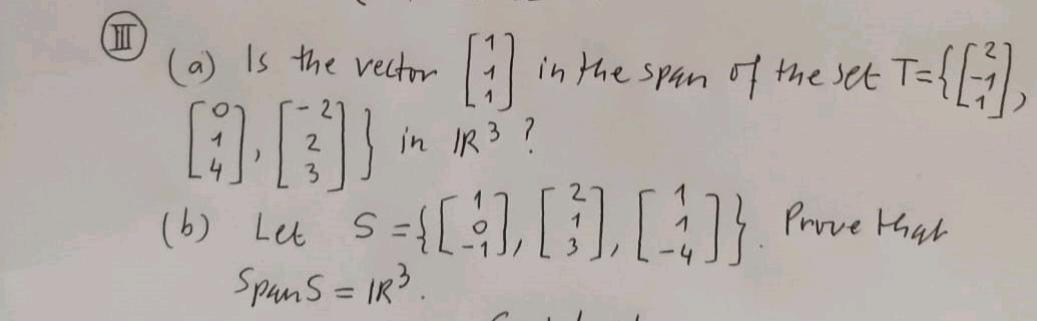 III (a) Is the vector [1 1 1] in the span of the set T={[2 -1 1],
[0 1 4], [-2 2 3]} in IR³ ?
(b) Let S={[1 0 -1], [2 1 3], [1 1 -4]}. Prove that
Span S = IR³.